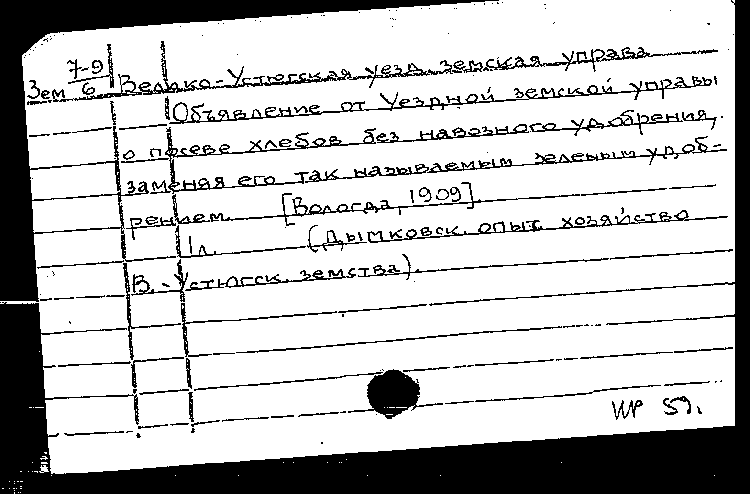 Зем 7-9/6 Велико-Устюгская уезд. земская управа
Объявление от Уездной земской управы
о посеве хлебов без навозного удобрения,
заменяя его так называемым зеленым удоб-
рением. [Вологда, 1909].
1 л. (Дымковск. опыт. хозяйство
В.-Устюгск. земства).
59.